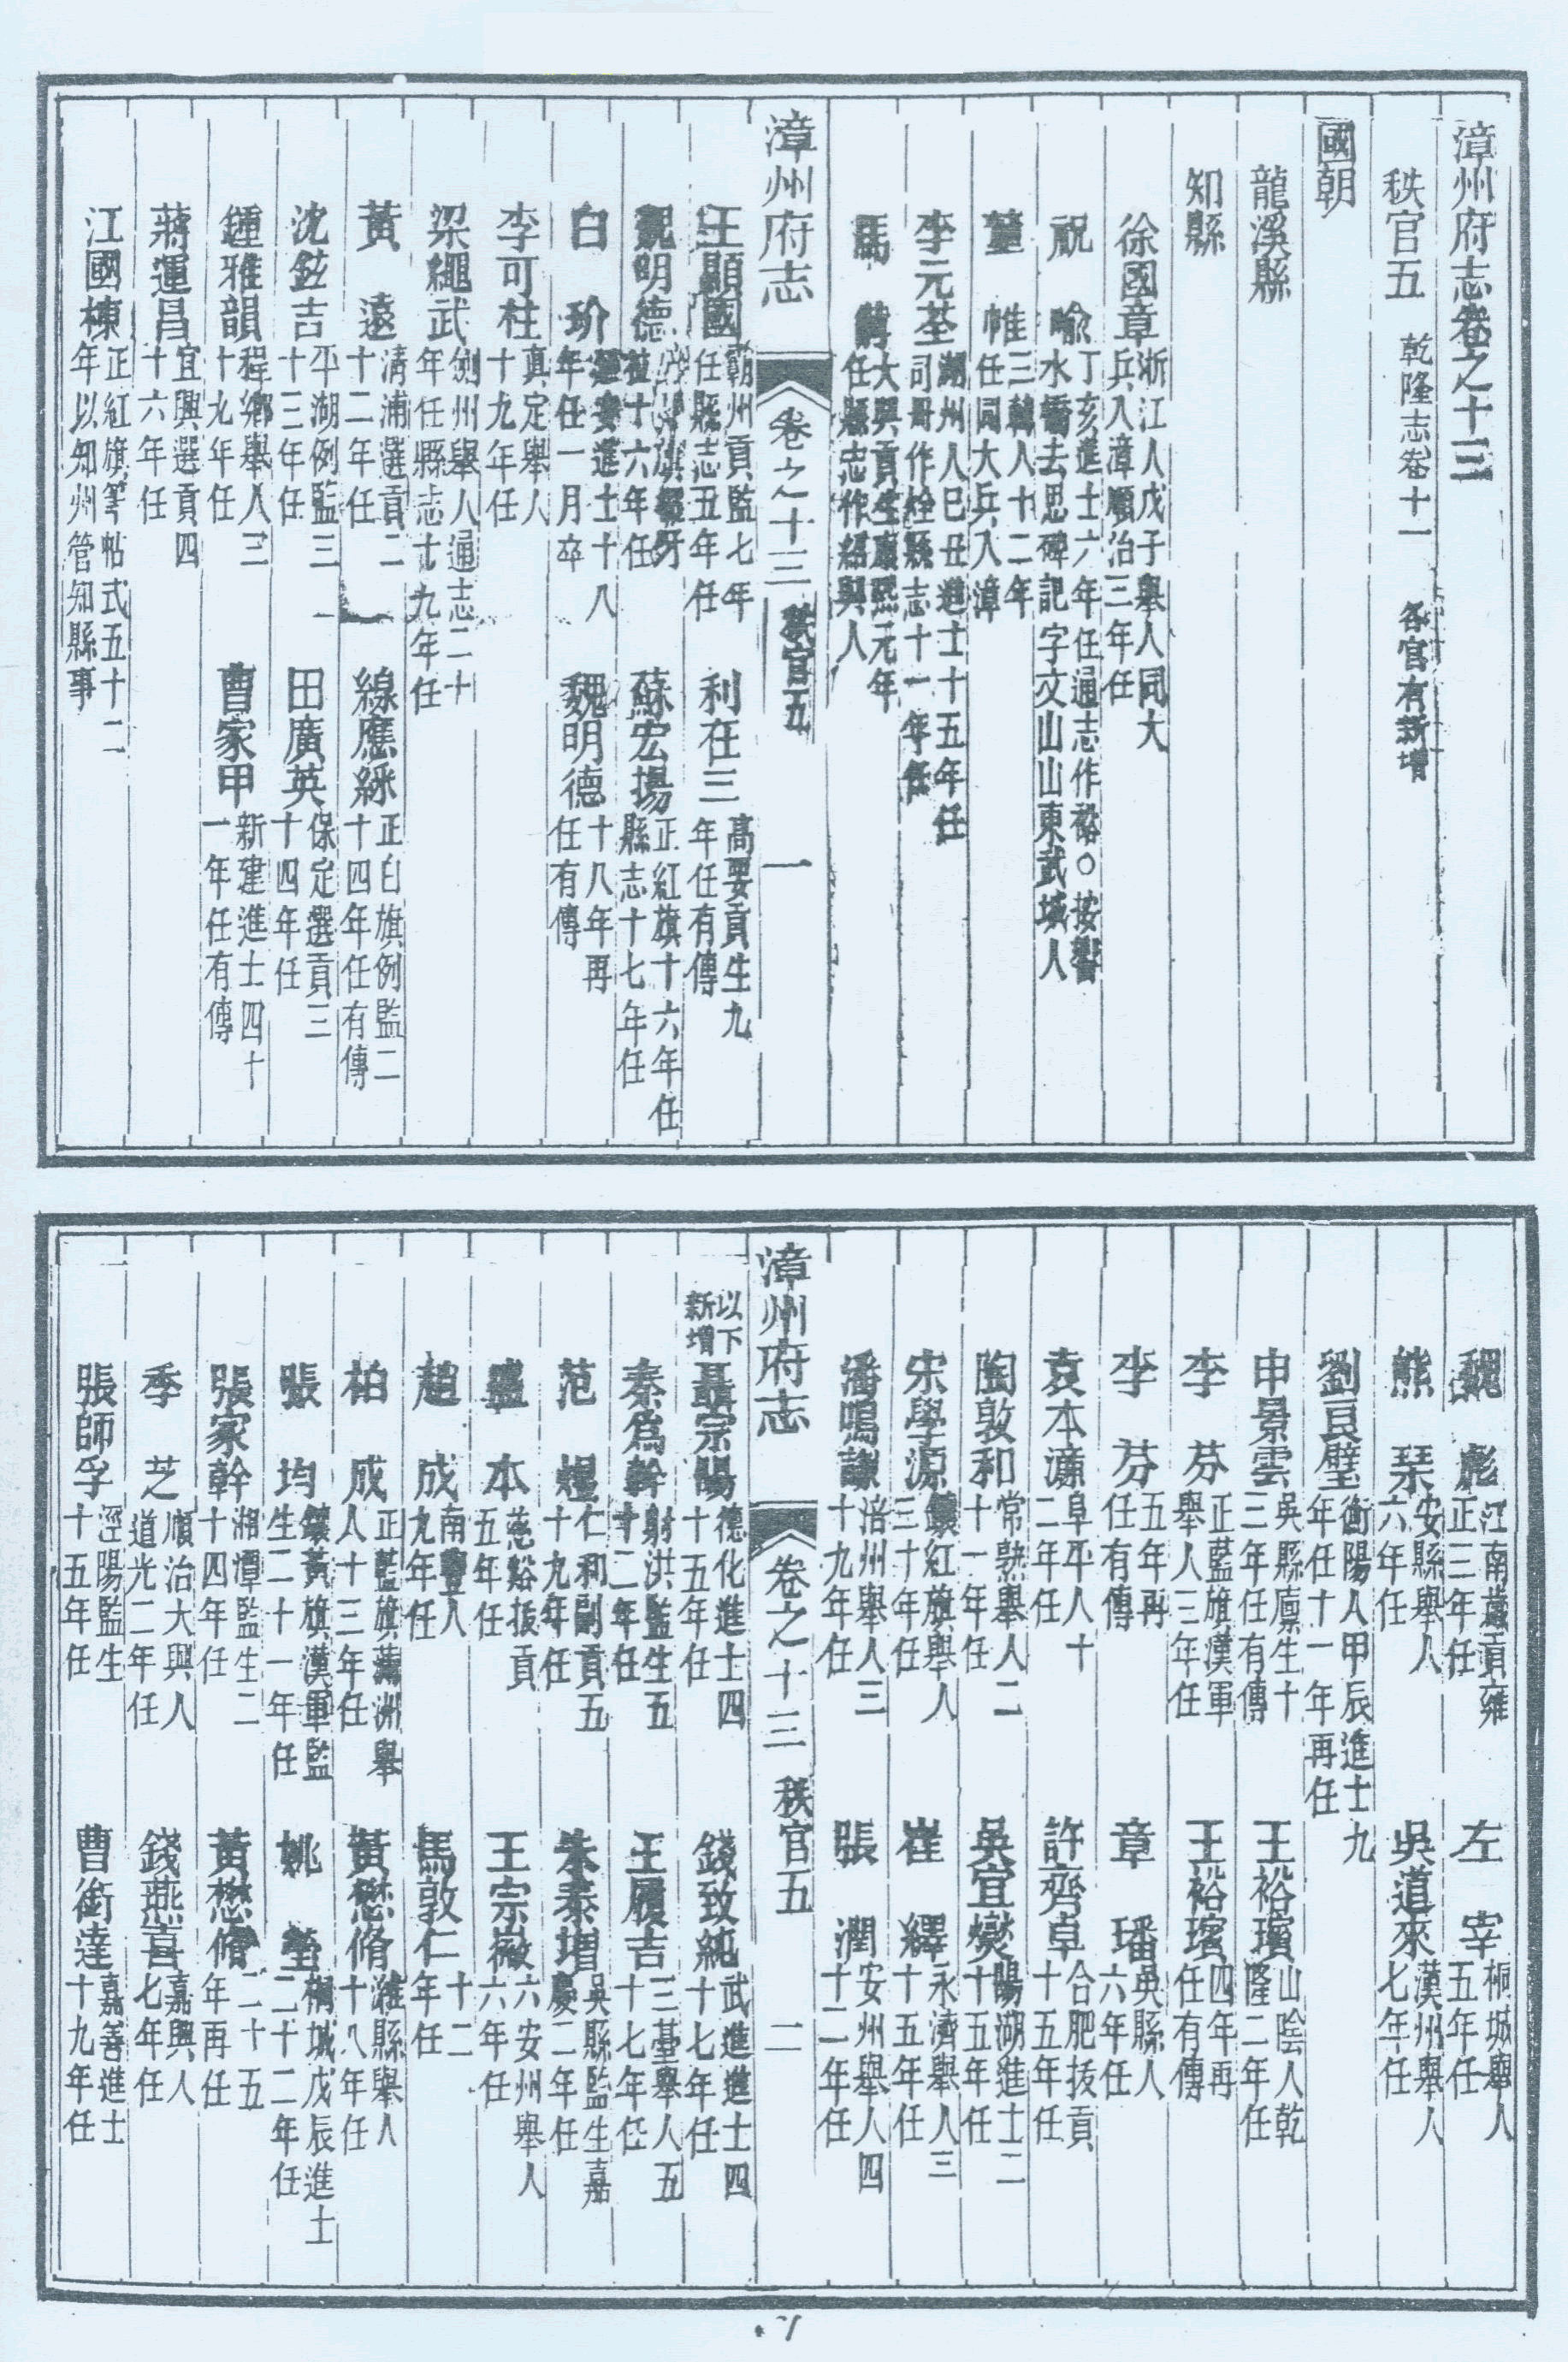 漳州府志卷之十三
秩官五 乾隆志卷十一 各官有新增
國朝
龍溪縣
知縣
徐國章 浙江人戊子舉人同大兵入漳順治三年任
祝喻 丁亥進士六年任通志作裕○按響水橋去思碑記字文山山東武城人
董惟 三韓人十二年任同大兵入漳
李元荃 湖州人己丑進士十五年任司哥作栓縣志十一年任
馬 大興貢生康熙元年任縣志作紹興人
漳州府志 卷之十三 秩官五 一
王顯國 霸州貢監七年任縣志五年任 利在三 高要貢生九年任有傳
魏明德 十六年任 蘇宏場 正紅旗十六年任縣志十七年任
白玠 延安進士十八年任一月卒 魏明德 十八年再任有傳
李可柱 真定舉人十九年任
梁繩武 劍州舉人通志二十年任縣志十九年任
黃遠 清浦選貢二十二年任 線應綵 正白旗例監二十四年任有傳
沈鉉吉 平湖例監三十三年任 田廣英 保定選貢三十四年任
鍾雅韻 程鄉舉人三十九年任 曹家甲 新建進士四十一年任有傳
蔣運昌 宜興選貢四十六年任
江國棟 正紅旗筆帖式五十二年以知州管知縣事
魏彪 江南歲貢雍正三年任 左宰 桐城舉人五年任
熊琹 安縣舉人六年任 吳道來 漢州舉人七年任
劉良璧 衡陽人甲辰進士九年任十一年再任
申景雲 吳縣廩生十三年任有傳 王裕璸 山陰人乾隆二年任
李芬 正藍旗漢軍舉人三年任 王裕璸 四年再任有傳
李芬 五年再任有傳 章璠 吳縣人六年任
袁本濂 阜平人十二年任 許齊卓 合肥拔貢十五年任
陶敦和 常熟舉人二十一年任 吳宜燮 陽湖進士二十五年任
宋學源 鑲紅旗舉人三十年任 崔繹 永濟舉人三十五年任
潘鳴謙 涪州舉人三十九年任 張潤 安州舉人四十二年任
漳州府志 卷之十三 秩官五 二
以下新增 聶宗陽 德化進士四十五年任 錢致純 武進進士四十七年任
秦爲幹 射洪監生五十二年任 王履吉 三臺舉人五十七年任
范煜 仁和副貢五十九年任 朱泰增 吳縣監生嘉慶二年任
盛本 慈谿拔貢五年任 王宗嶶 六安州舉人六年任
趙成 南豐人九年任 馬敦仁 十二年任
柏成 正藍旗滿洲舉人十三年任 黃懋脩 濰縣舉人十八年任
張均 鑲黃旗漢軍監生二十一年任 姚瑩 桐城戊辰進士二十二年任
張家幹 湘潭監生二十四年任 黃懋脩 二十五年再任
季芝 順治大興人道光二年任 錢燕喜 嘉興人七年任
張師孚 涇陽監生十五年任 曹銜達 嘉善進士十九年任